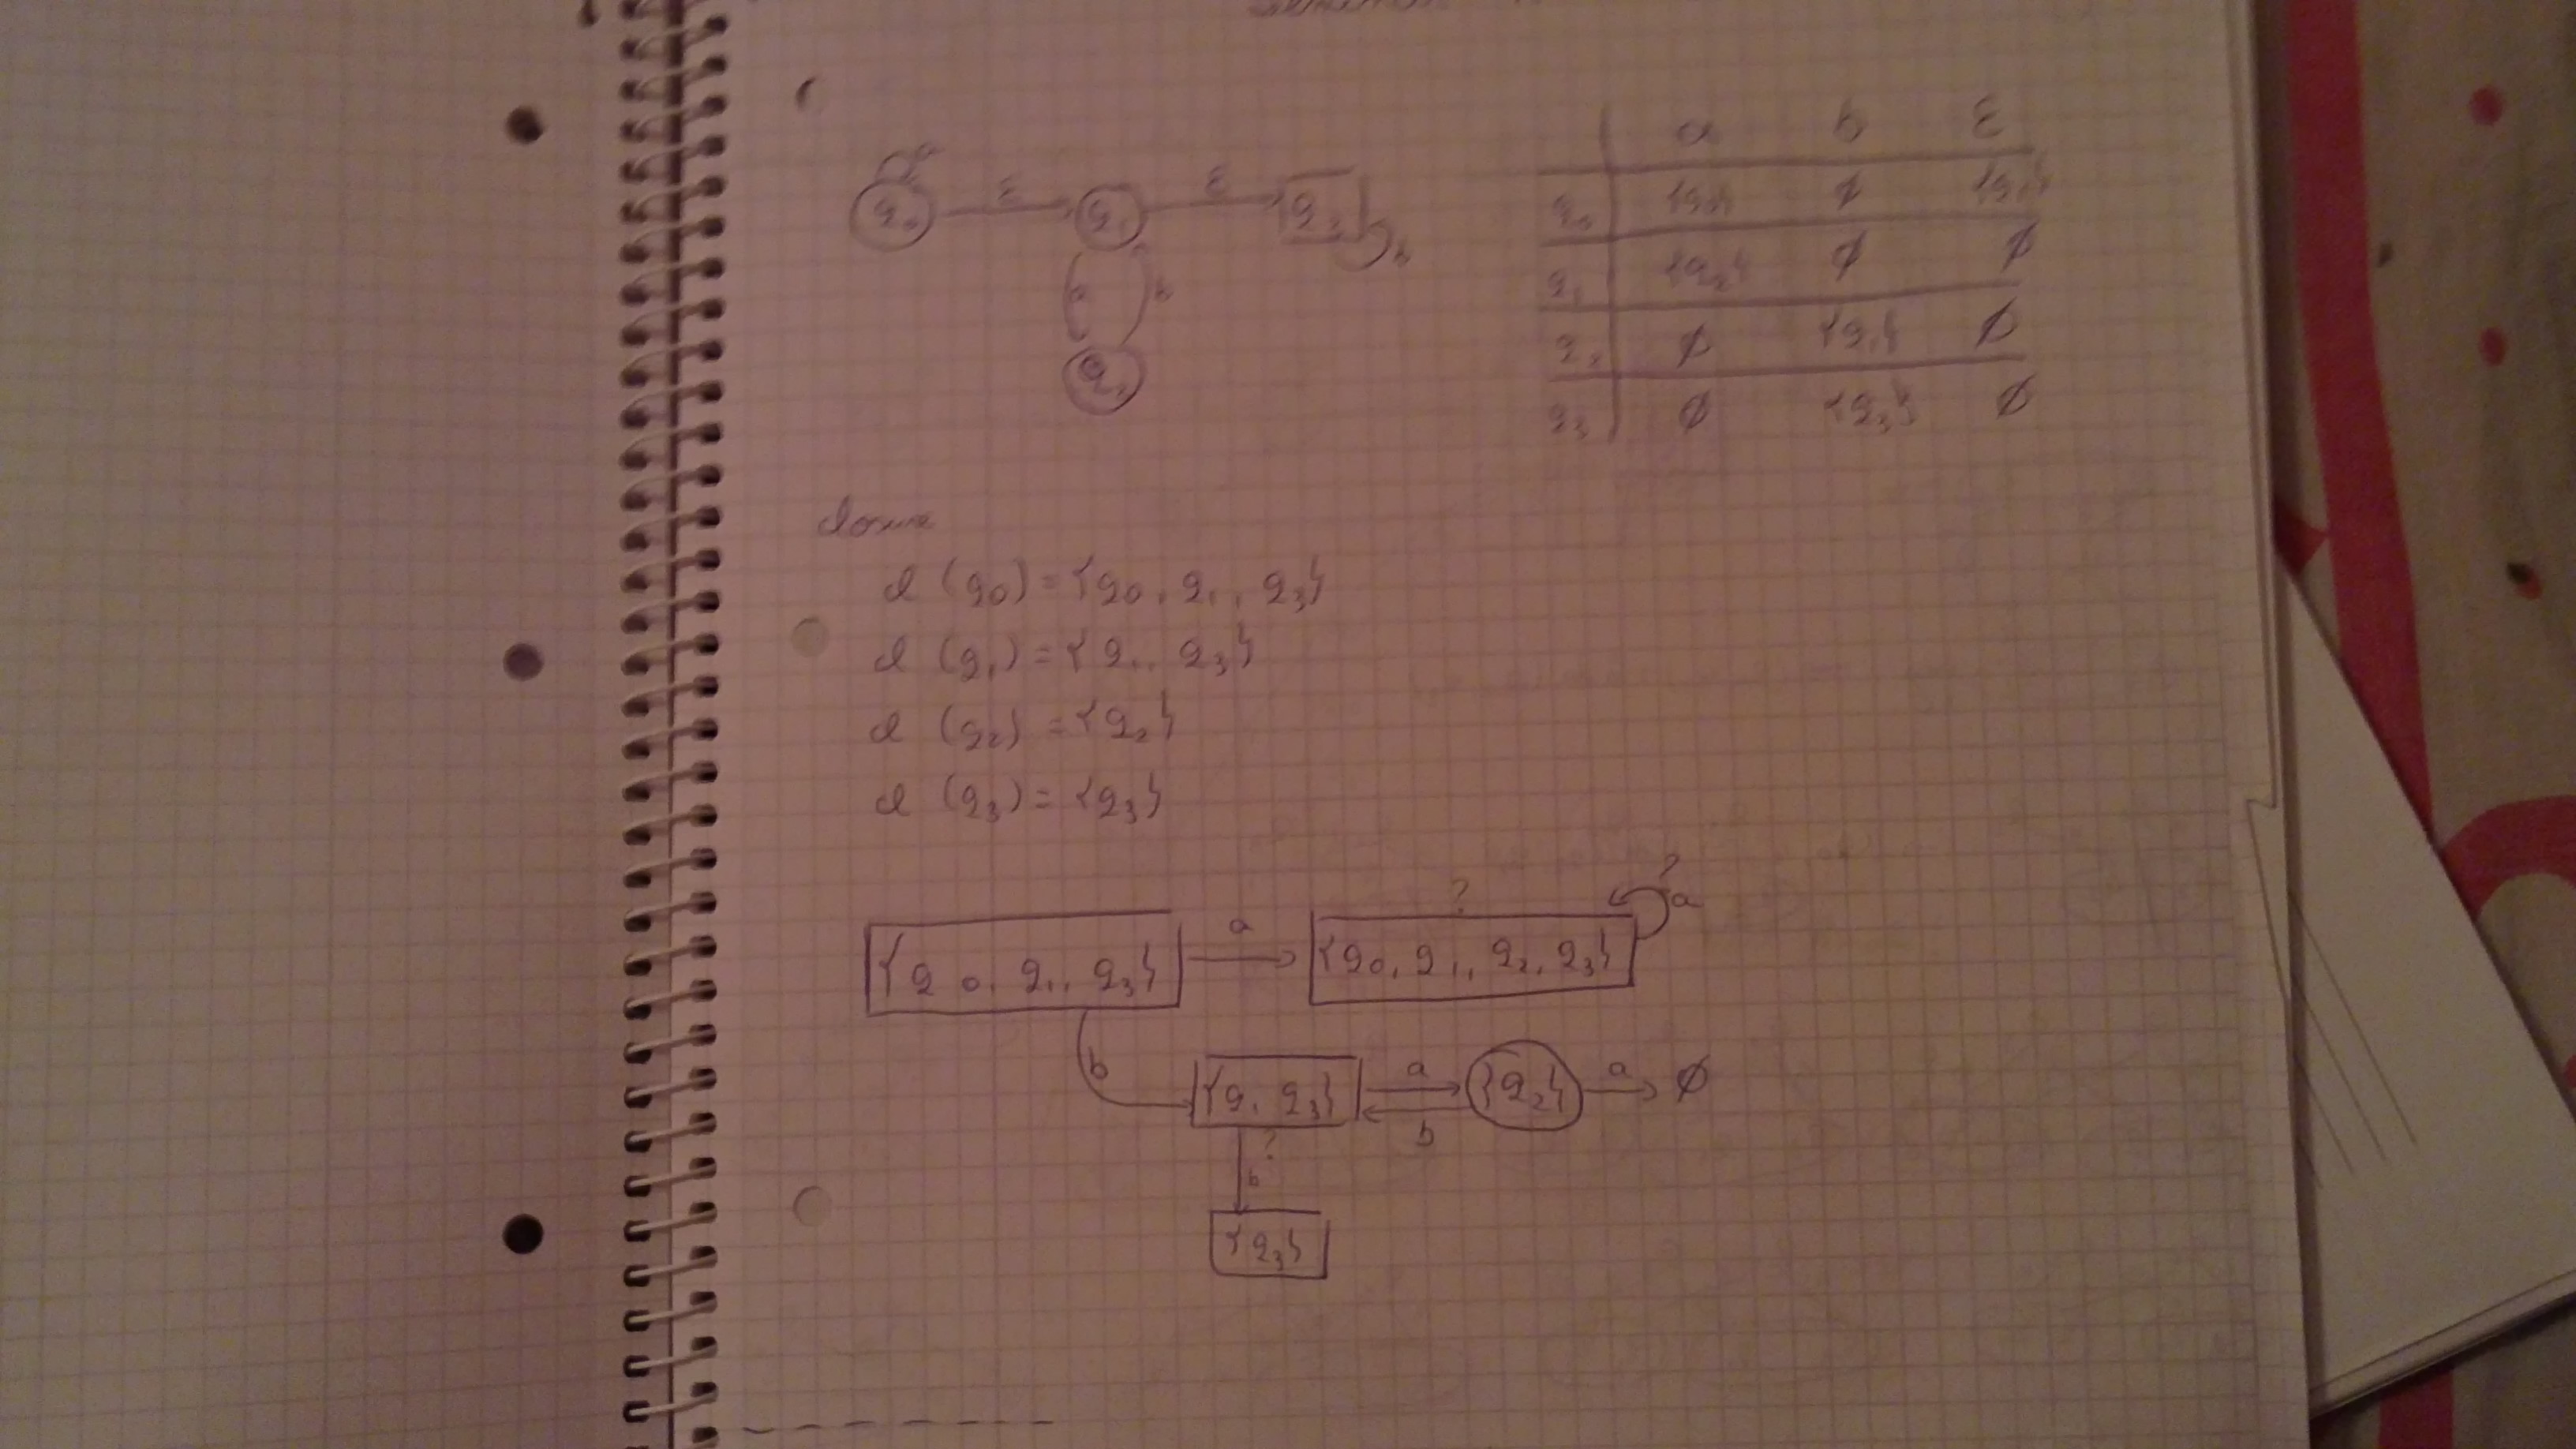 a
q₀ ε q₁ ε q₃
b
a b
q₂
a b ε
q₀ {q₀} ∅ {q₁}
q₁ {q₂} ∅ ∅
q₂ ∅ {q₁} ∅
q₃ ∅ {q₃} ∅
closure
cl (q₀) = {q₀, q₁, q₃}
cl (q₁) = {q₁, q₃}
cl (q₂) = {q₂}
cl (q₃) = {q₃}
? ?
{q₀, q₁, q₃} a {q₀, q₁, q₂, q₃} a
b {q₁ q₃} a {q₂} a ∅
b
?
b
{q₃}